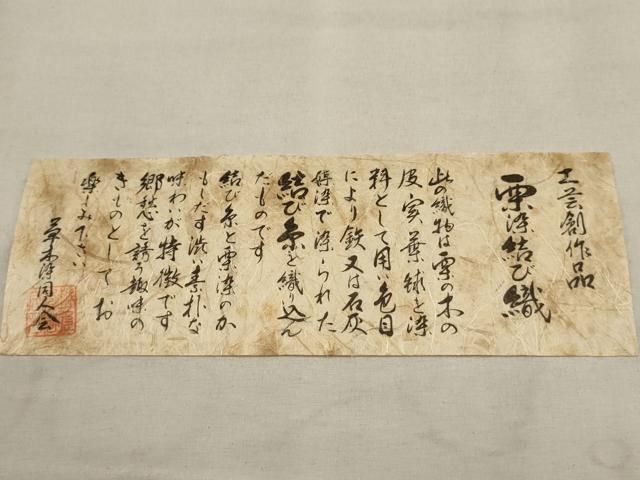 工芸創作品
栗染結び織
此の織物は栗の木の
皮実葉毬を染
料として用い色目
により鉄又は石灰
媒染で染られた
結び糸を織り込ん
だものです
結び糸と栗染のか
もしだす渋い素朴な
味わいが特徴です
郷愁を誘う趣味の
きものとしてお
楽しみ下さい
草木染同人会